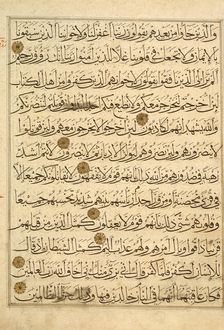 والذين جاؤا من بعدهم يقولون ربنا اغفر لنا ولاخواننا الذين سبقونا
بالايمان ولا تجعل في قلوبنا غلا للذين امنوا ربنا انك رؤف رحيم
الم تر الى الذين نافقوا يقولون لاخوانهم الذين كفروا من اهل الكتاب
لئن اخرجتم لنخرجن معكم ولا نطيع فيكم احدا ابدا وان قوتلتم لننصرنكم
والله يشهد انهم لكاذبون لئن اخرجوا لا يخرجون معهم ولئن قوتلوا
لا ينصرونهم ولئن نصروهم ليولن الادبار ثم لا ينصرون لانتم اشد
رهبة في صدورهم من الله ذلك بانهم قوم لا يفقهون لا يقاتلونكم جميعا الا
في قرى محصنة او من وراء جدر بأسهم بينهم شديد تحسبهم جميعا
وقلوبهم شتى ذلك بانهم قوم لا يعقلون كمثل الذين من قبلهم
قريبا ذاقوا وبال امرهم ولهم عذاب اليم كمثل الشيطان اذ قال
للانسان اكفر فلما كفر قال اني بريء منك اني اخاف الله رب العالمين
فكان عاقبتهما انهما في النار خالدين فيها وذلك جزاء الظالمين